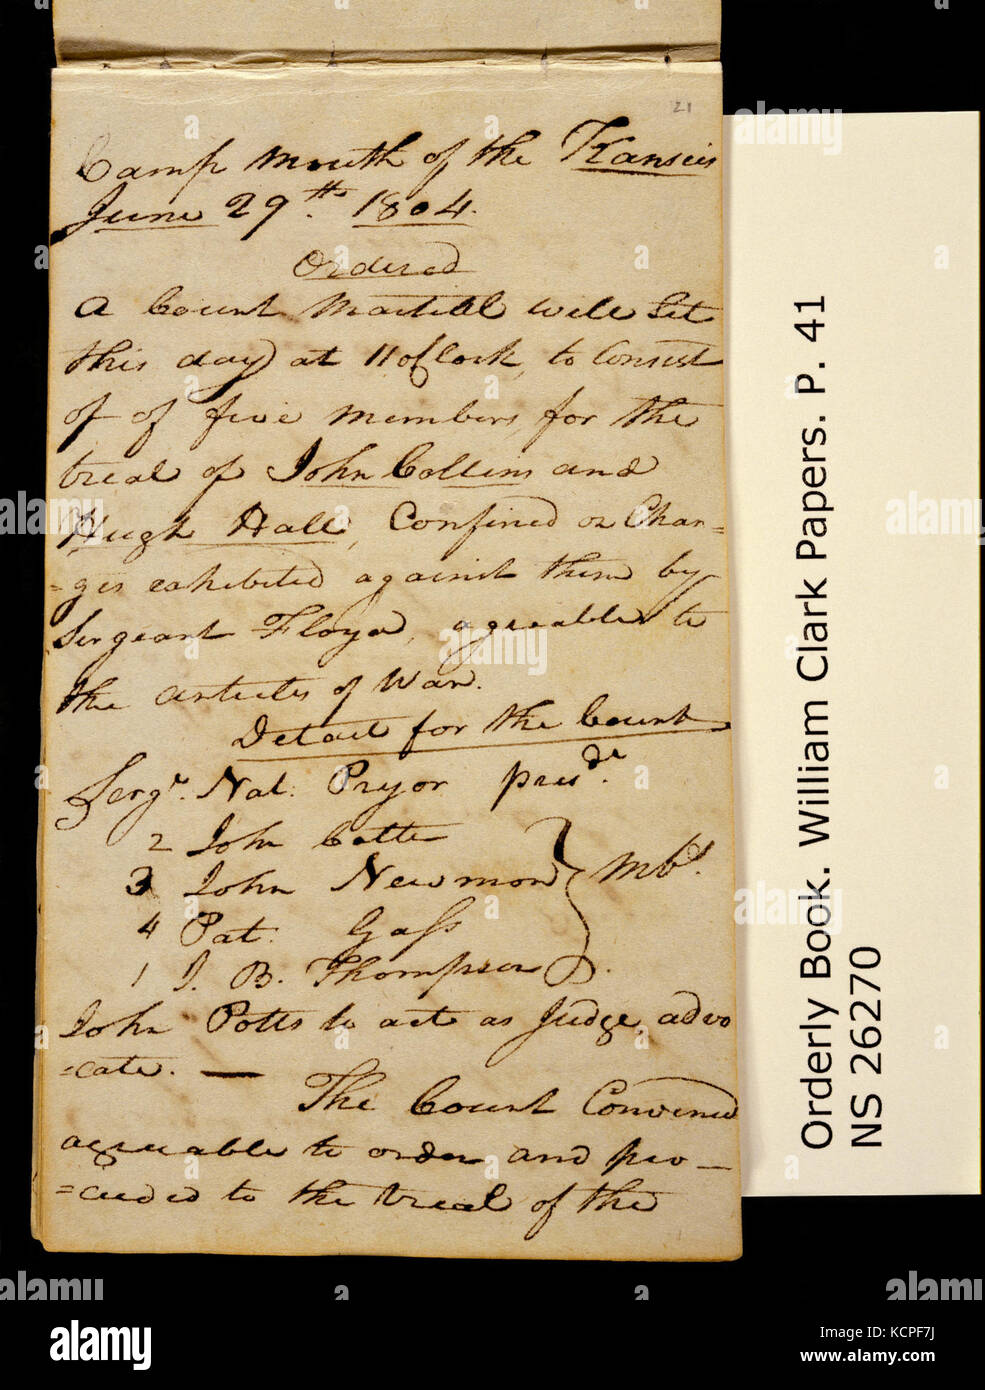 21
Camp Mouth of the Kanseis
June 29th. 1804.
Ordered
A Court Martiall will Set
this day at 11 oClock, to Consist
of of five members, for the
trial of John Collins and
Hugh Hall, Confined on Char=
=ges exhibited against them by
Sergeant Floyd, agreeable to
the articles of War.
Detail for the Court
Sergt. Nat. Pryor presd.
2 John Colter
3 John Newmon
4 Pat. Gass
1 J. B. Thompson
mbs.
John Potts to act as Judge advo
=cate. —
The Court Convened
agreeable to order and pro—
=ceeded to the trial of the
Orderly Book. William Clark Papers. P. 41
NS 26270
alamy
Image ID: KCPF7J
www.alamy.com